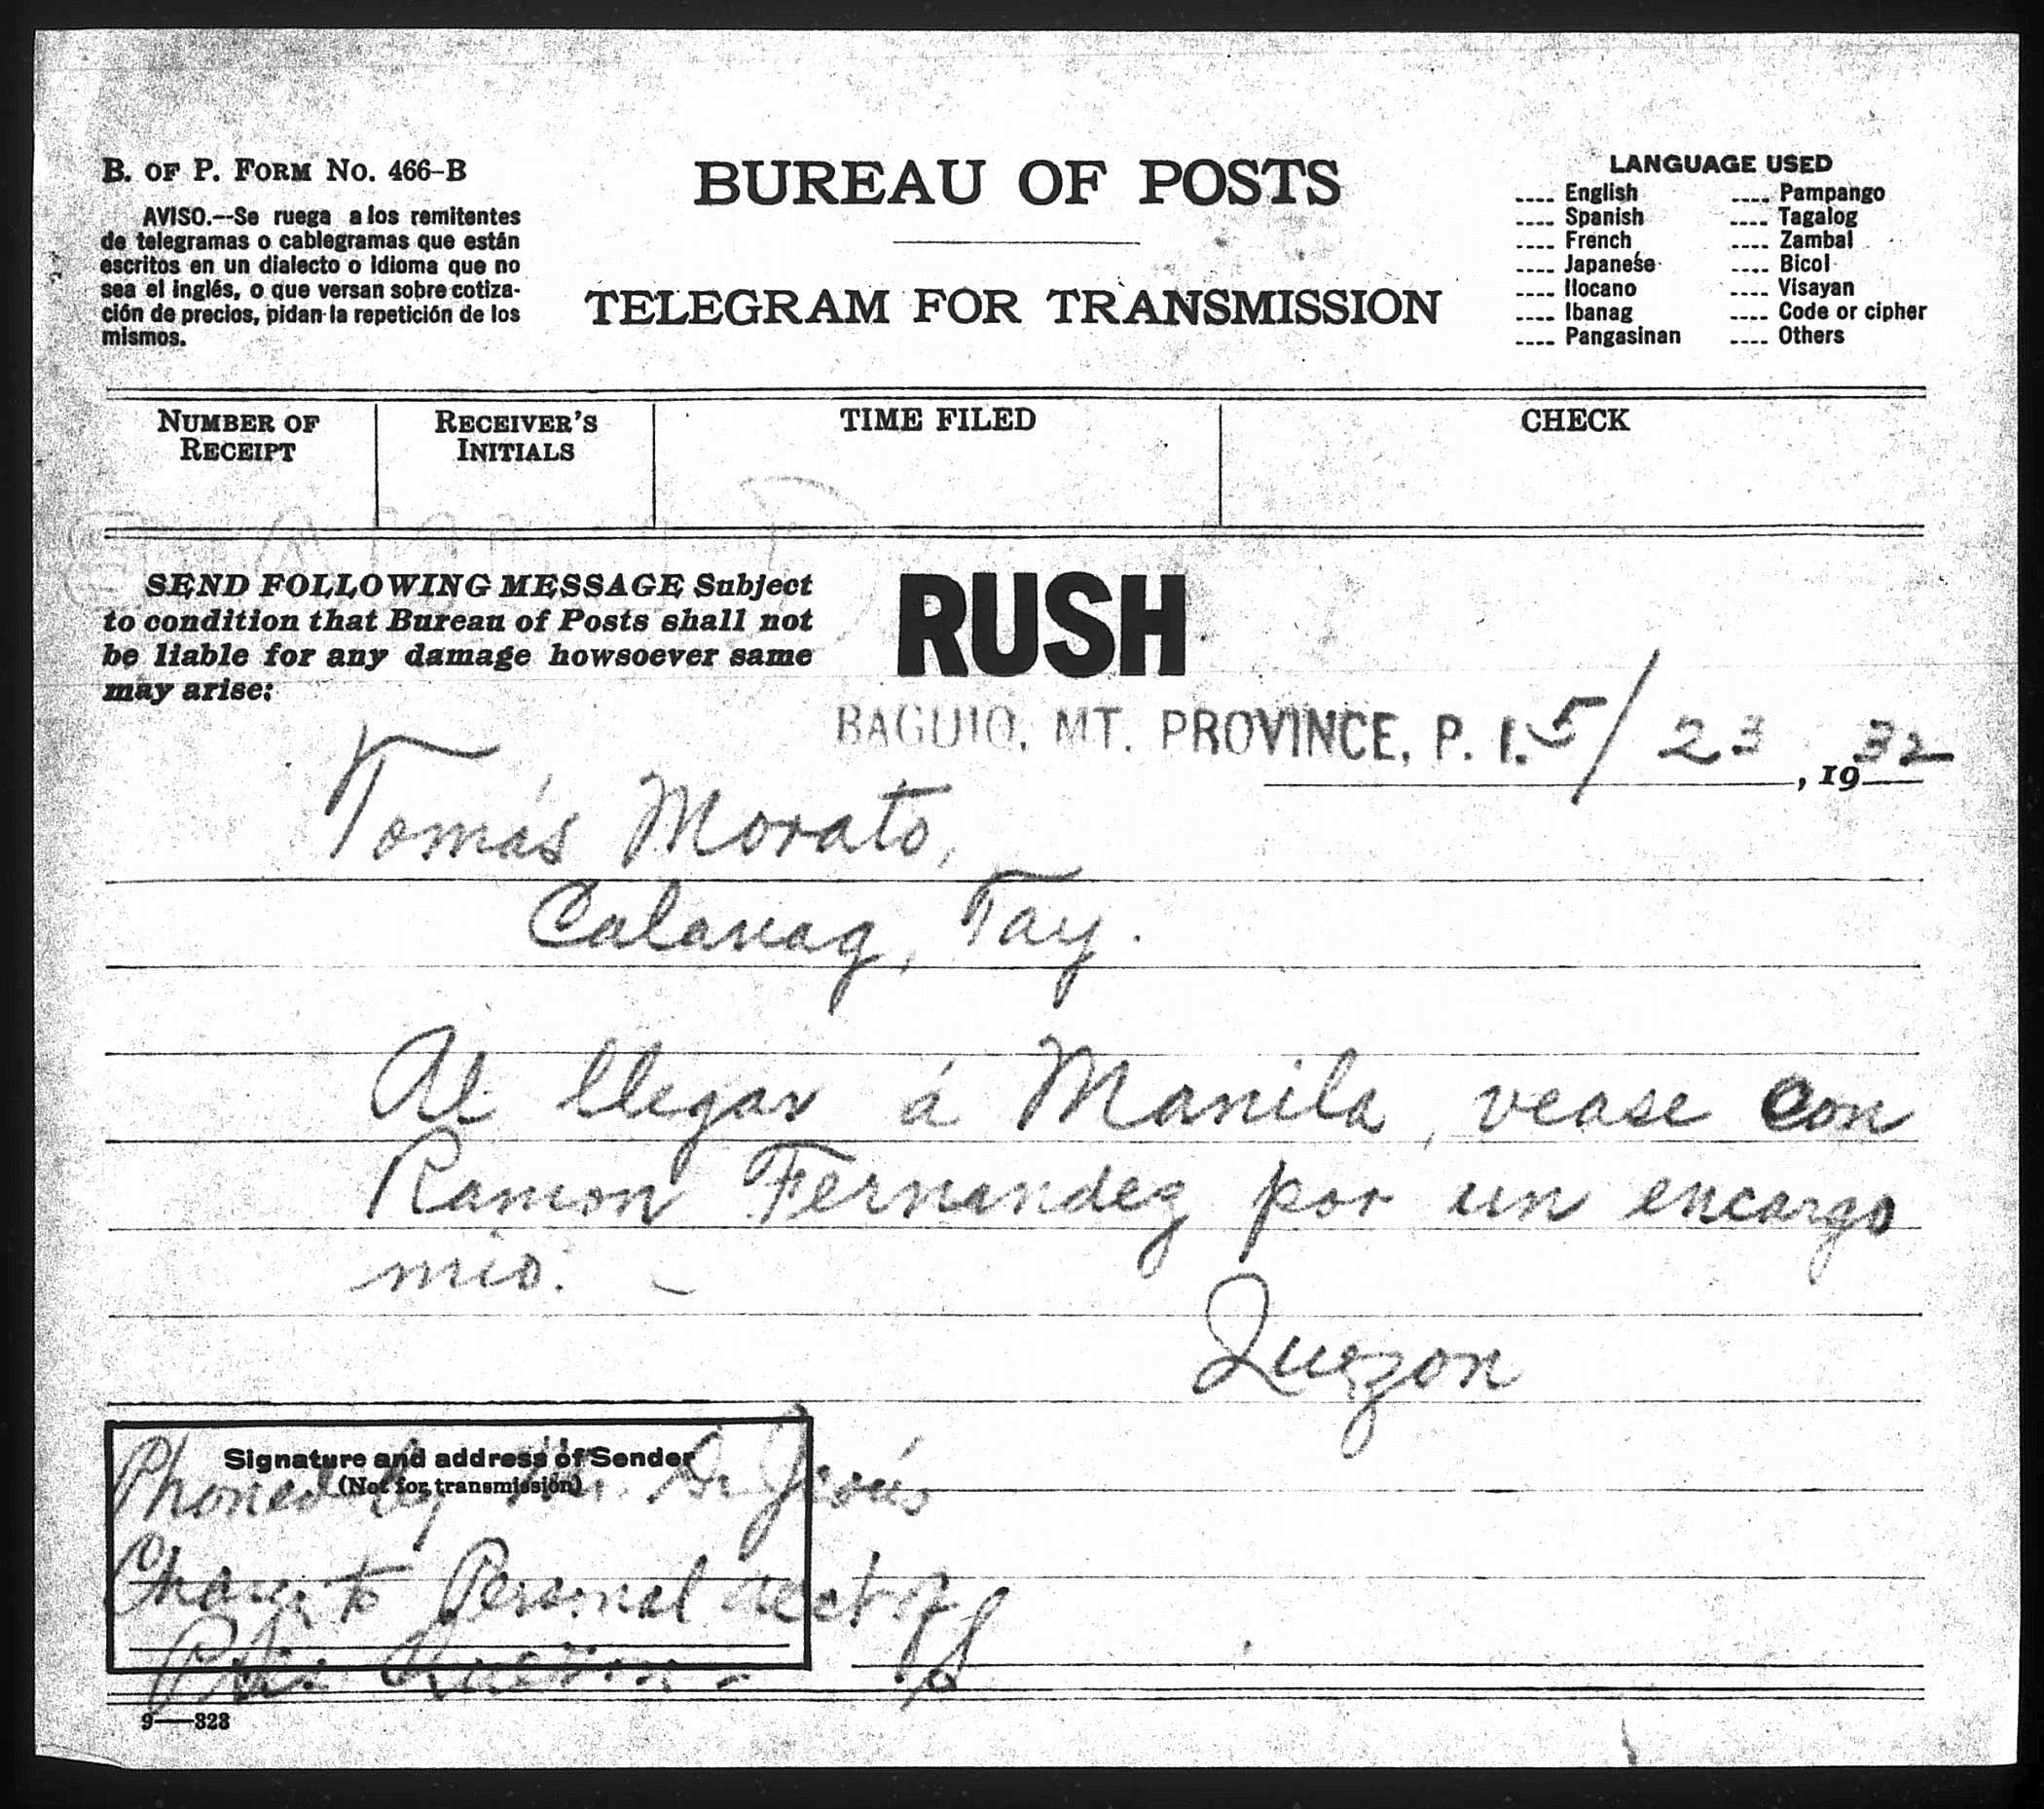 B. OF P. FORM NO. 466-B
AVISO.--Se ruega a los remitentes
de telegramas o cablegramas que están
escritos en un dialecto o idioma que no
sea el inglés, o que versan sobre cotiza-
ción de precios, pidan la repetición de los
mismos.
BUREAU OF POSTS
TELEGRAM FOR TRANSMISSION
LANGUAGE USED
---- English ---- Pampango
---- Spanish ---- Tagalog
---- French ---- Zambal
---- Japanese ---- Bicol
---- Ilocano ---- Visayan
---- Ibanag ---- Code or cipher
---- Pangasinan ---- Others
NUMBER OF
RECEIPT
RECEIVER'S
INITIALS
TIME FILED
CHECK
SEND FOLLOWING MESSAGE Subject
to condition that Bureau of Posts shall not
be liable for any damage howsoever same
may arise:
RUSH
BAGUIO, MT. PROVINCE, P. I. 5/23, 1932
Tomás Morato,
Calauag, Tay.
Al llegar á Manila, vease con
Ramon Fernandez por un encargo
mio. -
Quezon
Signature and address of Sender
(Not for transmission)
Phoned by Mr. De Jesús
Charge to Personal acct of
Pres. Quezon -
9—328